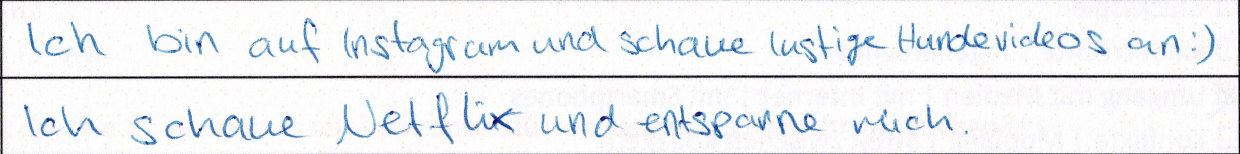 Ich bin auf Instagram und schaue lustige Hundevideos an:)
Ich schaue Netflix und entspanne mich.